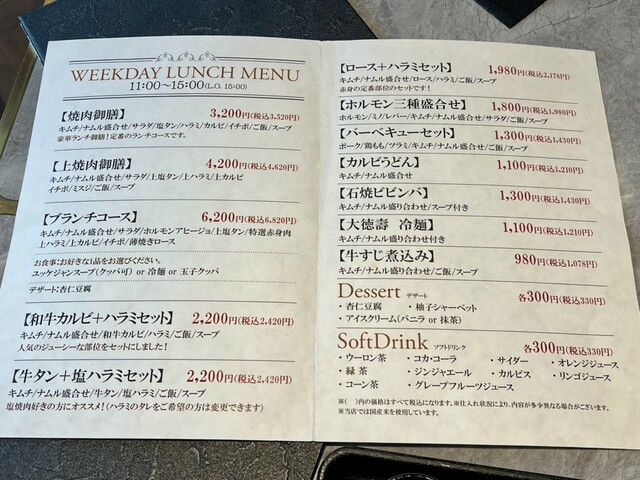 WEEKDAY LUNCH MENU
11:00～15:00(L.O. 15:00)
【焼肉御膳】 3,200円(税込3,520円)
キムチ/ナムル盛合せ/サラダ/塩タン/ハラミ/カルビ/イチボ/ご飯/スープ
豪華ランチ御膳！定番のランチコースです。
【上焼肉御膳】 4,200円(税込4,620円)
キムチ/ナムル盛合せ/サラダ/上塩タン/上ハラミ/上カルビ
イチボ/ミスジ/ご飯/スープ
【ブランチコース】 6,200円(税込6,820円)
キムチ/ナムル盛合せ/サラダ/ホルモンアヒージョ/上塩タン/特選赤身肉
上ハラミ/上カルビ/イチボ/薄焼きロース
お食事:お好きな1品をお選びください。
ユッケジャンスープ(クッパ可) or 冷麺 or 玉子クッパ
デザート:杏仁豆腐
【和牛カルビ+ハラミセット】 2,200円(税込2,420円)
キムチ/ナムル盛合せ/和牛カルビ/ハラミ/ご飯/スープ
人気のジューシーな部位をセットにしました！
【牛タン+塩ハラミセット】 2,200円(税込2,420円)
キムチ/ナムル盛合せ/牛タン/塩ハラミ/ご飯/スープ
塩焼肉好きの方にオススメ！(ハラミのタレをご希望の方は変更できます)
【ロース+ハラミセット】 1,980円(税込2,178円)
キムチ/ナムル盛合せ/ロース/ハラミ/ご飯/スープ
赤身の定番部位のセットです！
【ホルモン三種盛合せ】 1,800円(税込1,980円)
ホルモン/ミノ/レバー/キムチ/ナムル盛合せ/サラダ/ご飯/スープ
【バーベキューセット】 1,300円(税込1,430円)
ポーク/鶏もも/ツラミ/キムチ/ナムル盛合せ/ご飯/スープ
【カルビうどん】 1,100円(税込1,210円)
キムチ/ナムル盛合せ
【石焼ビビンバ】 1,300円(税込1,430円)
キムチ/ナムル盛り合わせ/スープ付き
【大徳壽 冷麺】 1,100円(税込1,210円)
キムチ/ナムル盛り合わせ付き
【牛すじ煮込み】 980円(税込1,078円)
キムチ/ナムル盛り合わせ/ご飯/スープ
Dessert デザート 各300円(税込330円)
・杏仁豆腐 ・柚子シャーベット
・アイスクリーム(バニラ or 抹茶)
SoftDrink ソフトドリンク 各300円(税込330円)
・ウーロン茶 ・コカ・コーラ ・サイダー ・オレンジジュース
・緑茶 ・ジンジャエール ・カルピス ・リンゴジュース
・コーン茶 ・グレープフルーツジュース
※( )内の価格はすべて税込になります。※仕入れ状況により、内容が多少異なる場合がございます。
※当店では国産米を使用しています。